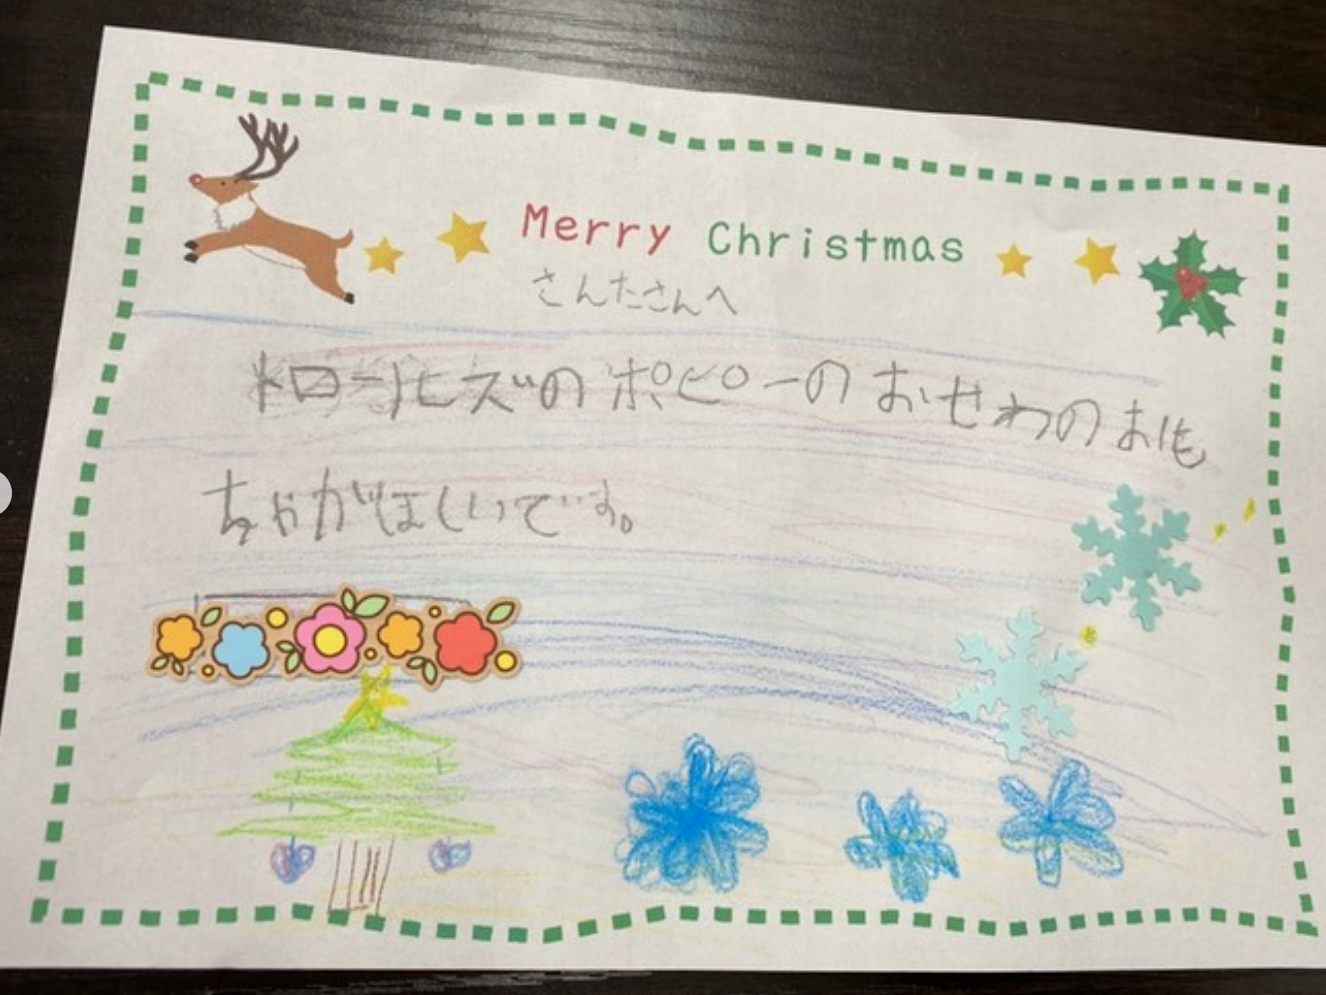 Merry Christmas
さんたさんへ
トロールヒズのポピーのおせわのおも
ちゃがほしいです。